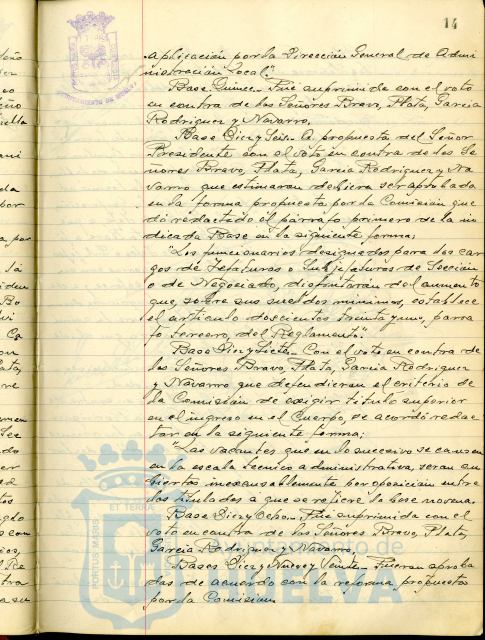 14
aplicación por la Dirección General de Admi
nistración Local".
Base Quince.- Fué suprimida con el voto
en contra de los Señores Bravo, Plata, Garcia
Rodriguez y Navarro.
Base Diez y Seis.- A propuesta del Señor
Presidente con el voto en contra de los Se
ñores Bravo, Plata, Garcia Rodriguez y Na
varro que estimaron debiera ser aprobada
en la forma propuesta por la Comisión que
dó redactado el párrafo primero de la in
dicada Base en la siguiente forma:
"Los funcionarios designados para los car
gos de Jefaturas o Subjefaturas de Sección
o de Negociado, disfrutarán del aumento
que, sobre sus sueldos mínimos, establece
el artículo doscientos treinta y uno, parra
fo tercero, del Reglamento".
Base Diez y Siete.- Con el voto en contra de
los Señores Bravo, Plata, Garcia Rodriguez
y Navarro que defendieron el criterio de
la Comisión de exigir título superior
en el ingreso en el Cuerpo, se acordó redac
tar en la siguiente forma:
"Las vacantes que en lo sucesivo se causen
en la escala tecnico administrativa, seran cu
biertas inexcusablemente por oposición entre
los titulados a que se refiere la base novena.
Base Diez y Ocho.- Fué suprimida con el
voto en contra de los Señores Bravo, Plata,
Garcia Rodriguez y Navarro.
Bases Diez y Nueve y Veinte.- Fueron aproba
das de acuerdo con la reforma propuestos
por la Comisión.